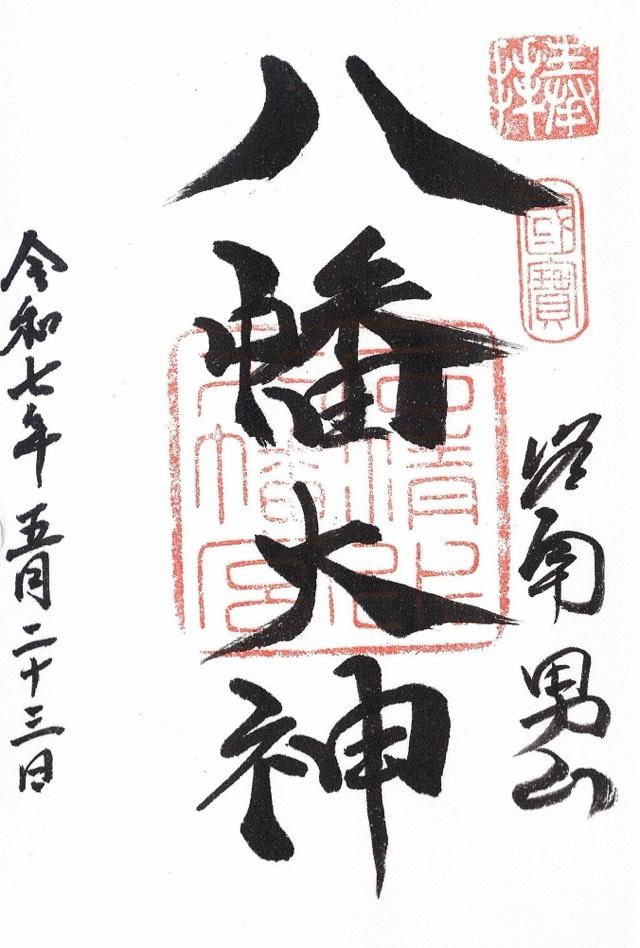 奉拝
國寳
洛南 男山
八幡大神
石清水八幡宮
令和七年 五月二十三日